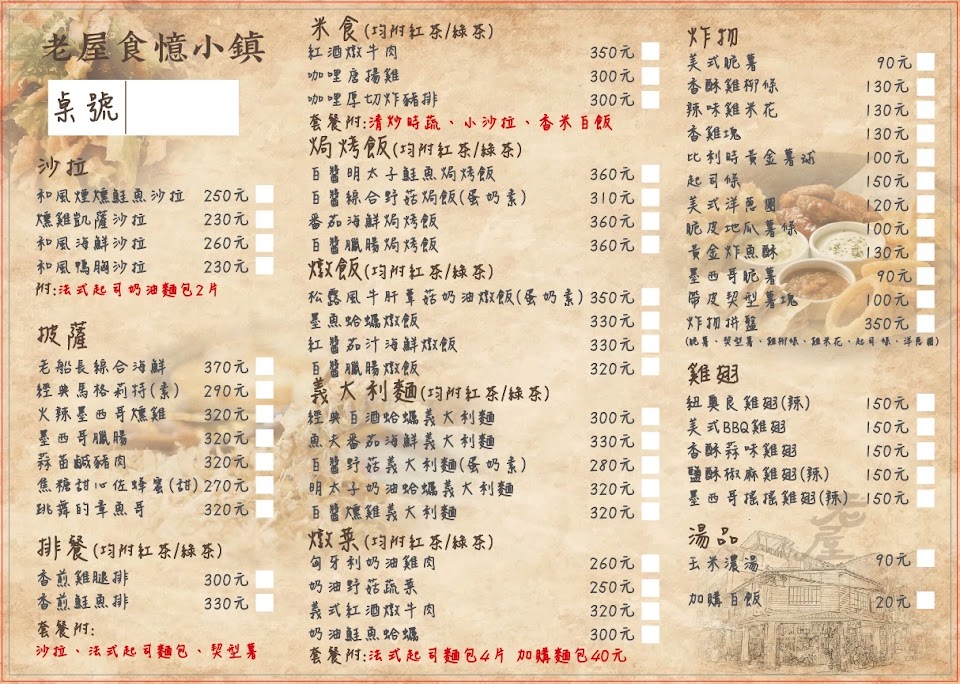 老屋食憶小鎮
桌號
沙拉
和風煙燻鮭魚沙拉 250元
燻雞凱薩沙拉 230元
和風海鮮沙拉 260元
和風鴨胸沙拉 230元
附:法式起司奶油麵包2片
披薩
老船長綜合海鮮 370元
經典馬格莉特(素) 290元
火辣墨西哥燻雞 320元
墨西哥臘腸 320元
蒜苗鹹豬肉 320元
焦糖甜心佐蜂蜜(甜) 270元
跳舞的章魚哥 320元
排餐(均附紅茶/綠茶)
香煎雞腿排 300元
香煎鮭魚排 330元
套餐附:
沙拉、法式起司麵包、契型薯
米食(均附紅茶/綠茶)
紅酒燉牛肉 350元
咖哩唐揚雞 300元
咖哩厚切炸豬排 300元
套餐附:清炒時蔬、小沙拉、香米白飯
焗烤飯(均附紅茶/綠茶)
白醬明太子鮭魚焗烤飯 360元
白醬綜合野菇焗飯(蛋奶素) 310元
番茄海鮮焗烤飯 360元
白醬臘腸焗烤飯 360元
燉飯(均附紅茶/綠茶)
松露風牛肝蕈菇奶油燉飯(蛋奶素) 350元
墨魚蛤蠣燉飯 330元
紅醬茄汁海鮮燉飯 330元
白醬臘腸燉飯 320元
義大利麵(均附紅茶/綠茶)
經典白酒蛤蠣義大利麵 300元
魚夫番茄海鮮義大利麵 330元
白醬野菇義大利麵(蛋奶素) 280元
明太子奶油蛤蠣義大利麵 320元
白醬燻雞義大利麵 320元
燉菜(均附紅茶/綠茶)
匈牙利奶油雞肉 260元
奶油野菇蔬菜 250元
義式紅酒燉牛肉 320元
奶油鮭魚蛤蠣 300元
套餐附:法式起司麵包4片 加購麵包40元
炸物
美式脆薯 90元
香酥雞柳條 130元
辣味雞米花 130元
香雞塊 130元
比利時黃金薯球 100元
起司條 150元
美式洋蔥圈 120元
脆皮地瓜薯條 100元
黃金炸魚酥 130元
墨西哥脆薯 90元
帶皮契型薯塊 100元
炸物拼盤 350元
(脆薯、契型薯、雞柳條、雞米花、起司條、洋蔥圈)
雞翅
紐奧良雞翅(辣) 150元
美式BBQ雞翅 150元
香酥蒜味雞翅 150元
鹽酥椒麻雞翅(辣) 150元
墨西哥搖搖雞翅(辣) 150元
湯品
玉米濃湯 90元
加購白飯 20元